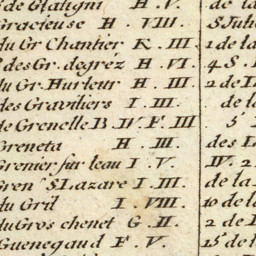 de Glatigni H . V.
Gracieuse H . VIII.
du Gr Chantier K . III.
des Gr. degrez H . VI.
du Gr. Hurleur H . III.
des Gravilliers I . III.
de Grenelle B . IV . F . III
Greneta H . III.
Grenier sur leau I . V.
Gren.r S Lazare I . III.
du Gril I . VIII.
du Gros chenet G . II.
Guenegaud F . V.
de la
S Juli
1 de la
4 S.
2 de l
de la
5
des
IV. 2
de la
10 de la
2 de
15 de l